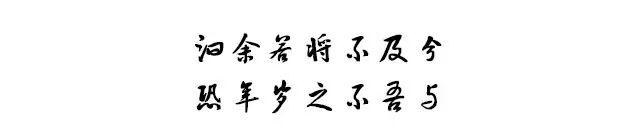 汩余若将不及兮
恐年岁之不吾与